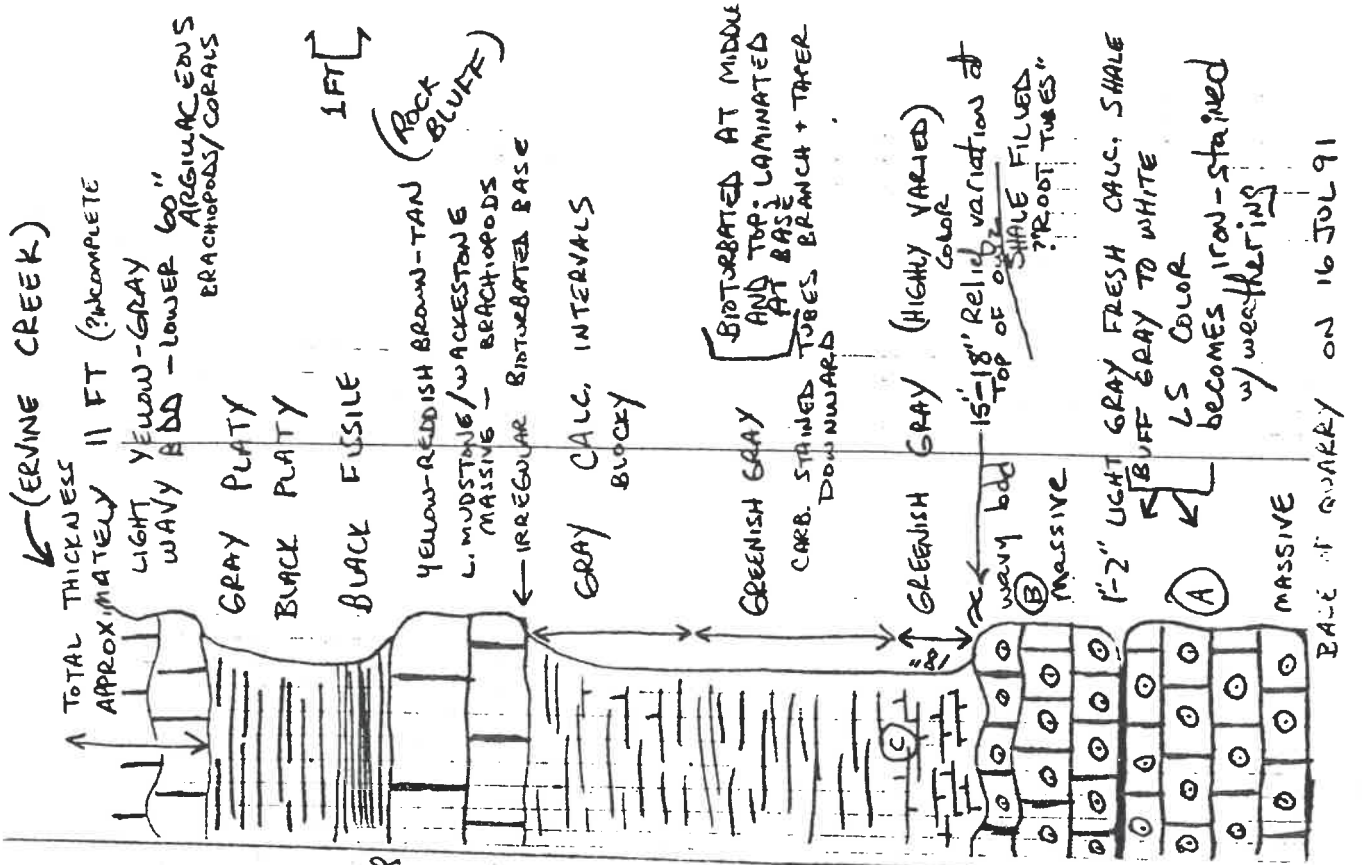 (ERVINE CREEK)
TOTAL THICKNESS
APPROXIMATELY 11 FT (?INCOMPLETE
LIGHT YELLOW-GRAY
WAVY BDD - LOWER 60"
ARGILLACEOUS
BRACHIOPODS/CORALS
GRAY PLATY
BLACK PLATY
BLACK FISSILE
1 FT
YELLOW-REDDISH BROWN-TAN
(ROCK
BLUFF)
L. MUDSTONE/WACKESTONE
MASSIVE - BRACHIOPODS
IRREGULAR BIOTURBATED BASE
GRAY CALC. INTERVALS
BLOCKY
GREENISH GRAY
BIOTURBATED AT MIDDLE
AND TOP; LAMINATED
AT BASE
CARB. STAINED TUBES BRANCH + TAPER
DOWNWARD
GREENISH GRAY (HIGHLY VARIED)
COLOR
18"
C
15"-18" Relief variation at
TOP OF
SHALE FILLED
?"ROOT TUBES"
wavy bdd
B
Massive
1"-2" LIGHT GRAY FRESH CALC. SHALE
BUFF GRAY TO WHITE
LS COLOR
becomes iron-stained
w/ weathering
A
MASSIVE
BASE OF QUARRY ON 16 JUL 91